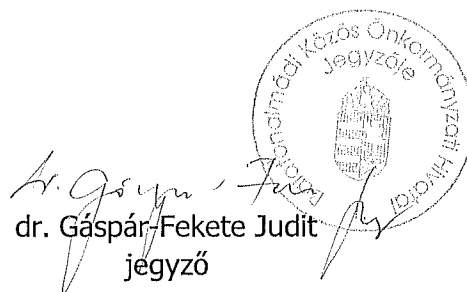 Balatonalmádi Közös Önkormányzati Hivatal
Jegyzője
dr. Gáspár-Fekete Judit
jegyző